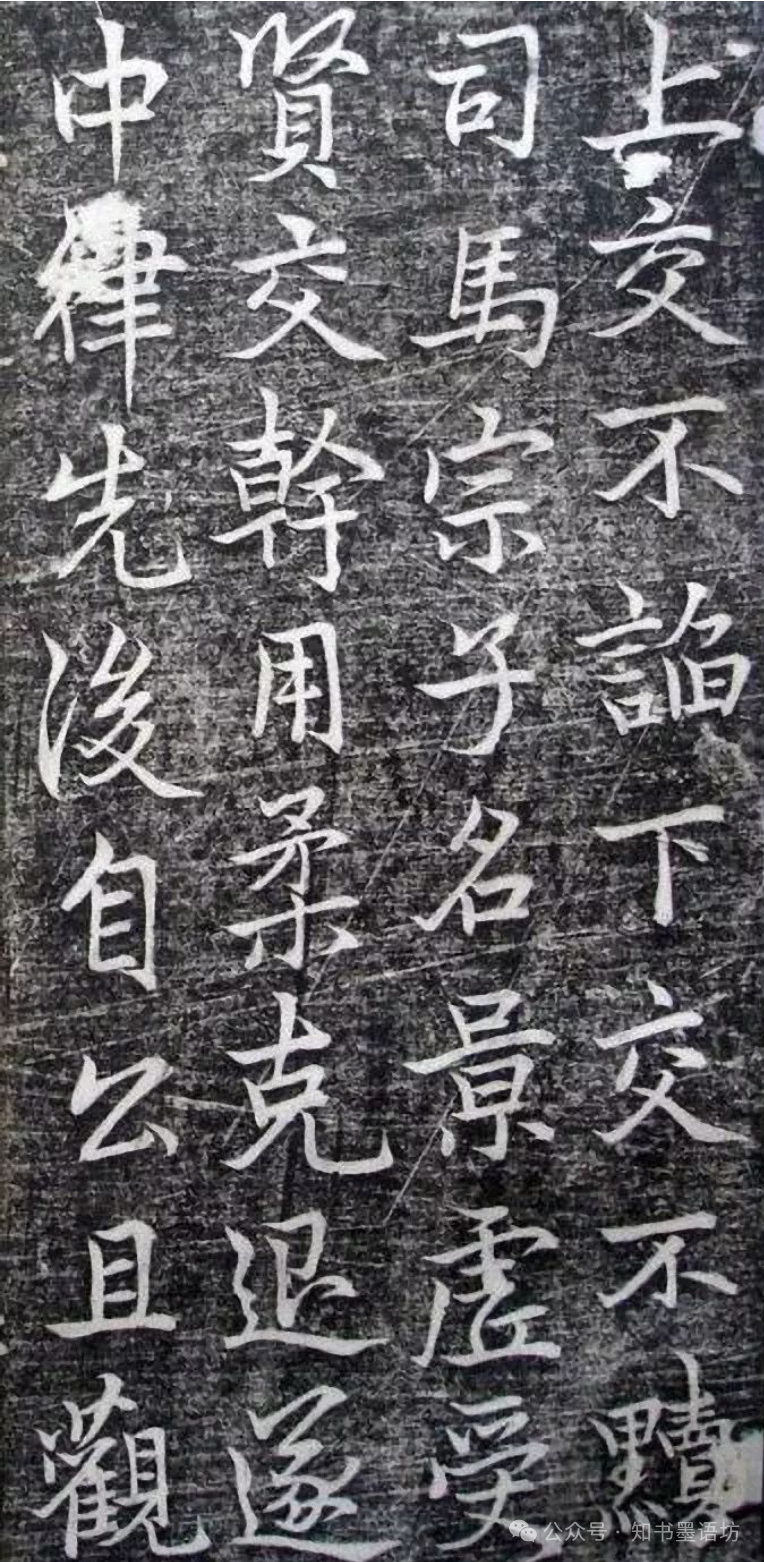 上交不諂下交不黷
司馬宗子名景虛受
賢交幹用柔克退遂
中律先後自公且觀
公众号·知书墨语坊